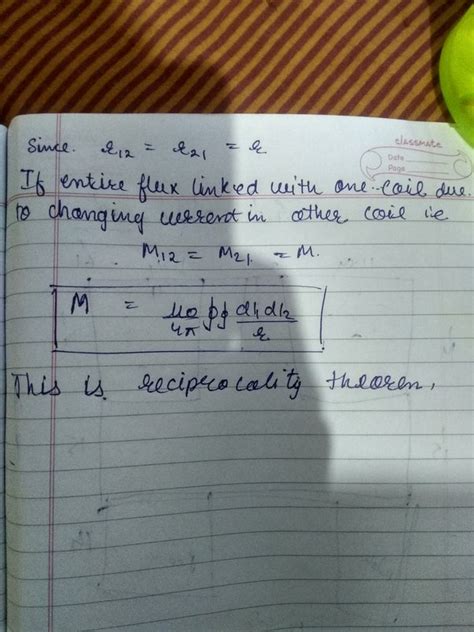 classmate
Date
Page
Since. r₁₂ = r₂₁ = r
If entire flux linked with one coil due
to changing current in other coil i.e
M₁₂ = M₂₁ = M.
M = μ₀/4π ∮∮ dl₁ dl₂/r
This is reciprocality theorem,